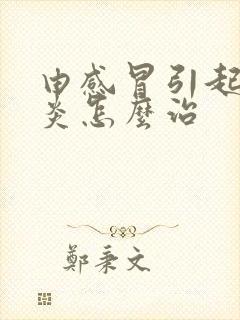 由感冒引起
炎怎麼治
鄭秉文